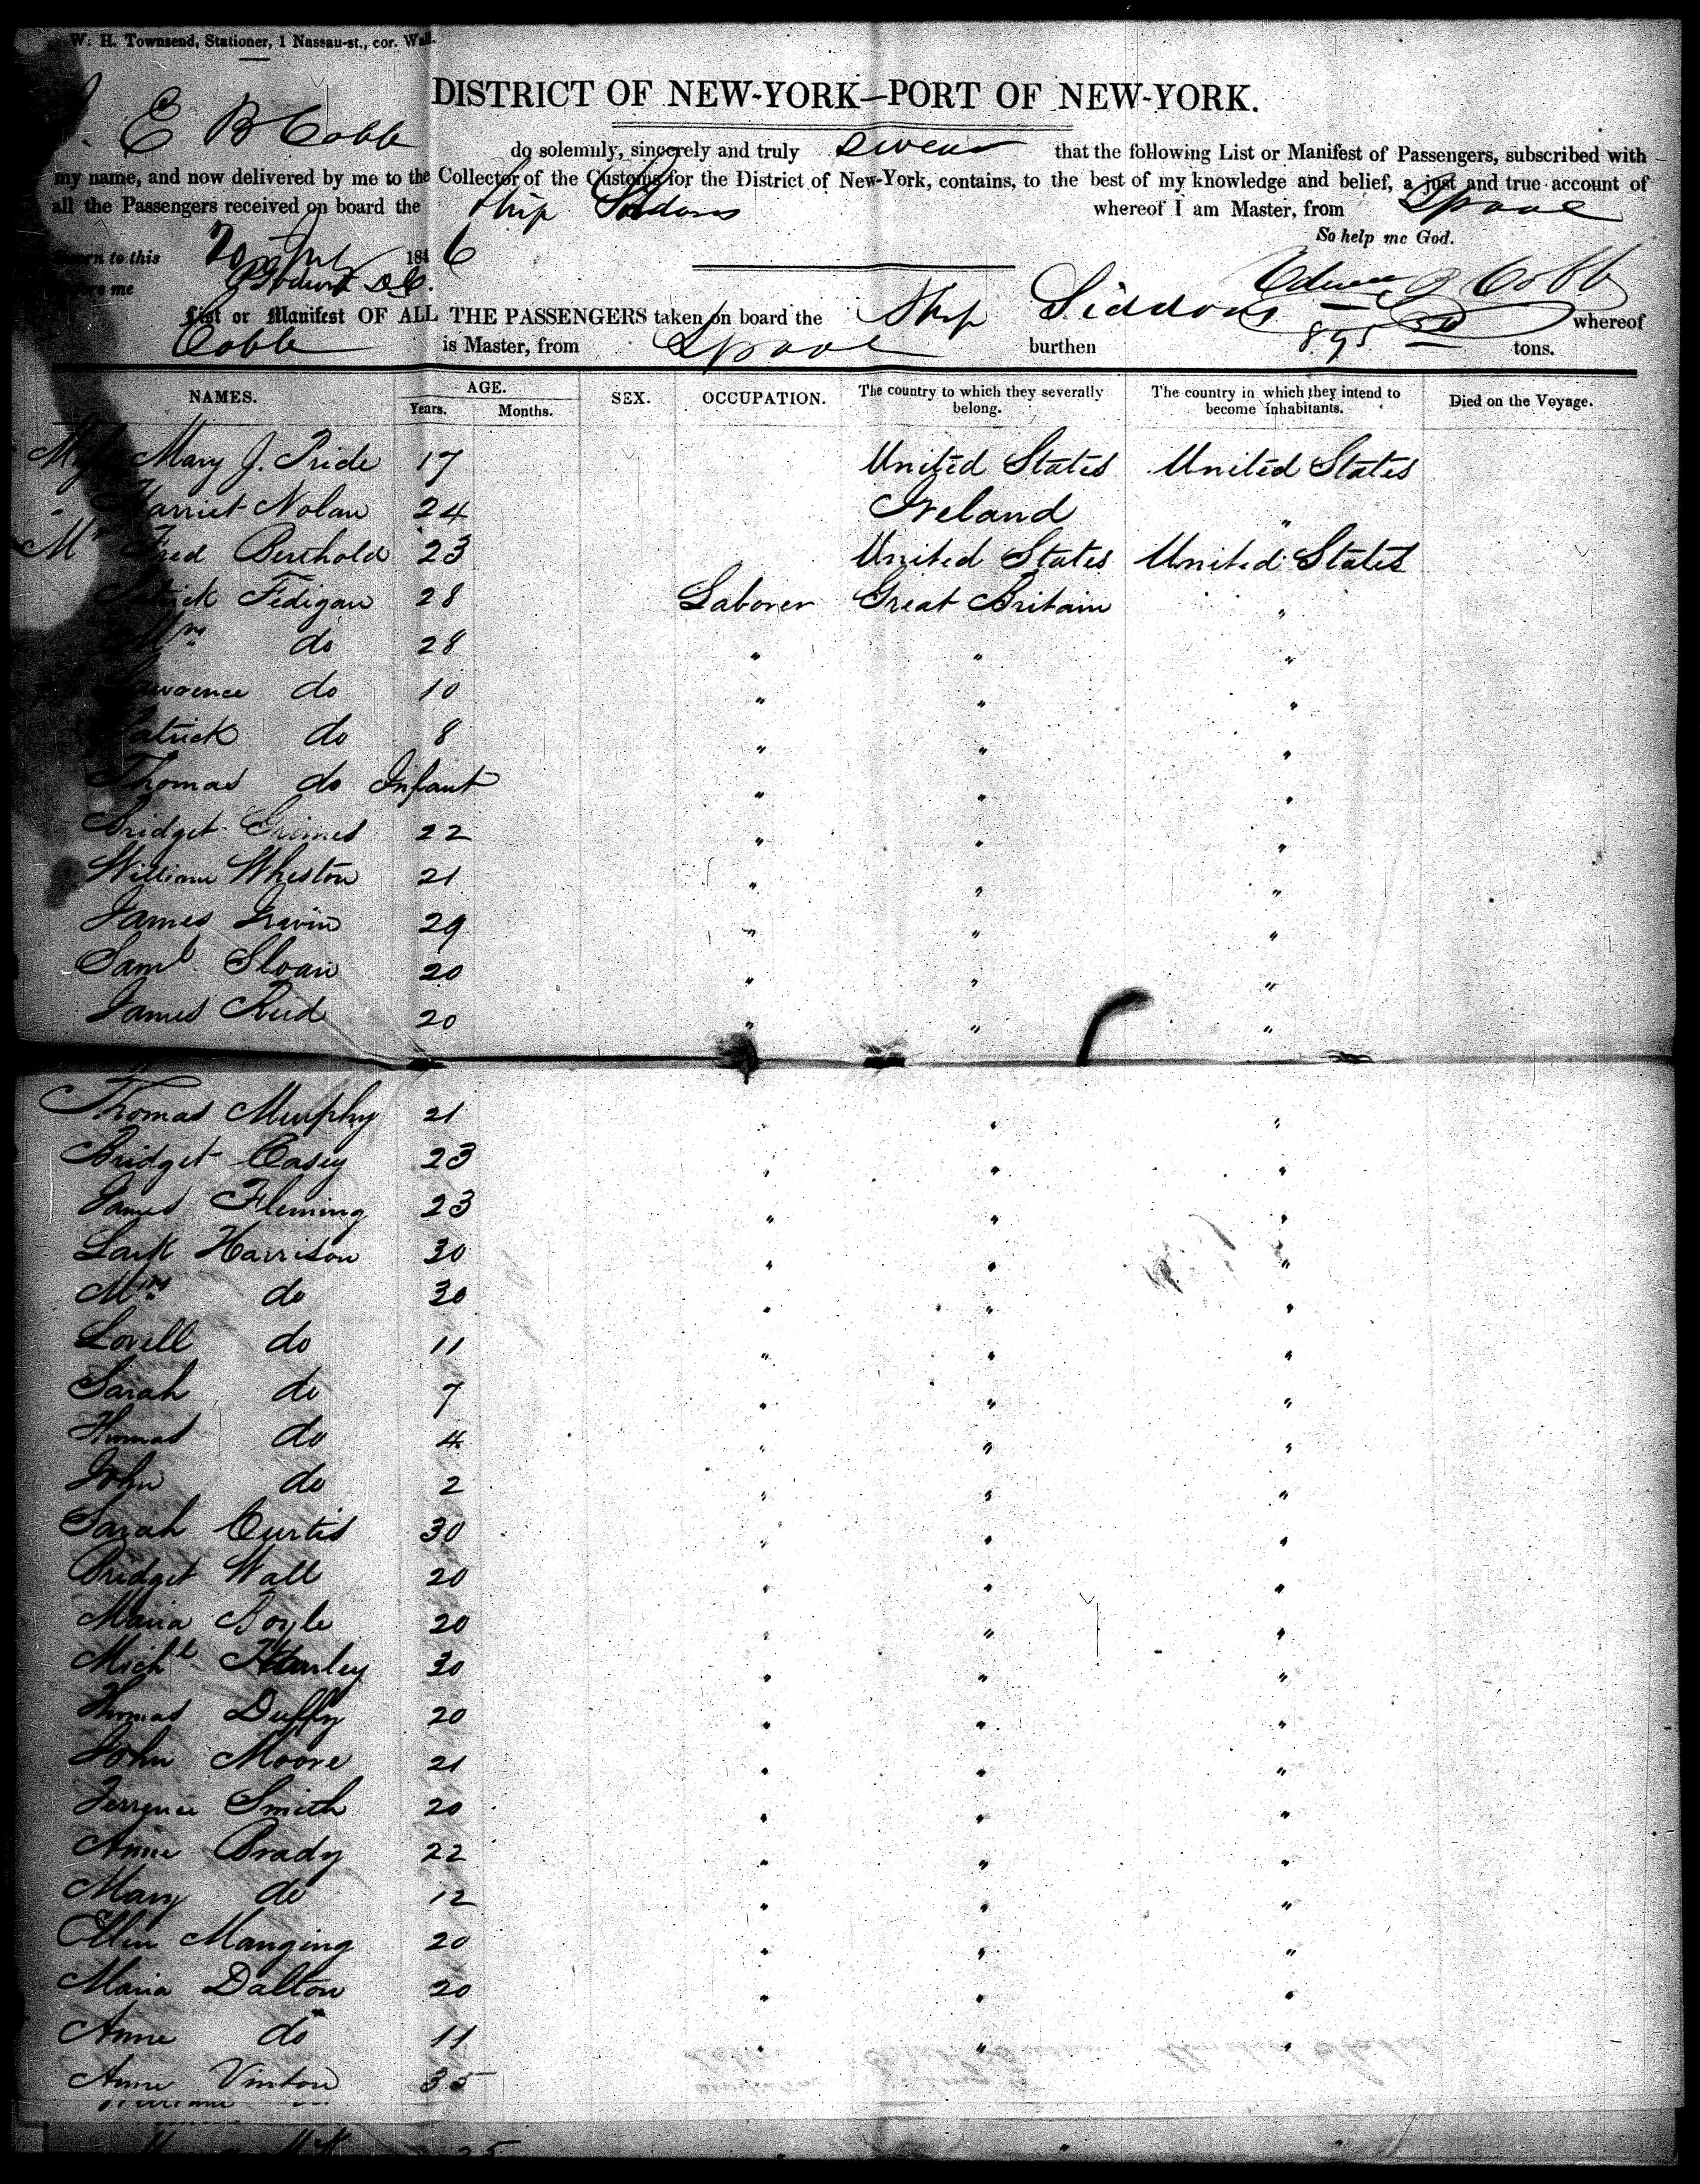 W. H. Townsend, Stationer, 1 Nassau-st., cor. Wall.
DISTRICT OF NEW-YORK—PORT OF NEW-YORK.
E B Cobb do solemnly, sincerely and truly swear that the following List or Manifest of Passengers, subscribed with
my name, and now delivered by me to the Collector of the Customs for the District of New-York, contains, to the best of my knowledge and belief, a just and true account of
all the Passengers received on board the Ship Siddons whereof I am Master, from Lpool
So help me God.
Sworn to this 20 184 6
before me
Cobb
List or Manifest OF ALL THE PASSENGERS taken on board the Ship Siddons whereof
Cobb is Master, from Lpool burthen 895 tons.
NAMES. AGE. SEX. OCCUPATION. The country to which they severally belong. The country in which they intend to become inhabitants. Died on the Voyage.
Years. Months.
Mary J. Pride 17 United States United States
" Harriet Nolan 24 Ireland "
Mr Fred Berthold 23 United States United States
Patrick Fedigan 28 Laborer Great Britain "
Mrs do 28 " " "
Lawrence do 10 " " "
Patrick do 8 " " "
Thomas do Infant " " "
Bridget Grimes 22 " " "
William Wheston 21 " " "
James Irwin 29 " " "
Saml Sloan 20 " " "
James Reid 20 " " "
Thomas Murphy 21 " " "
Bridget Casey 23 " " "
James Fleming 23 " " "
Lark Harrison 30 " " "
Mrs do 30 " " "
Lovell do 11 " " "
Sarah do 7 " " "
Thomas do 4 " " "
John do 2 " " "
Sarah Curtis 30 " " "
Bridget Wall 20 " " "
Maria Boyle 20 " " "
Michl 30 " " "
Thomas Duffy 20 " " "
John Moore 21 " " "
Terrence Smith 20 " " "
Anne Brady 22 " " "
Mary do 12 " " "
Ellen Manging 20 " " "
Maria Dalton 20 " " "
Anne do 11 " " "
Anne Vinton 35